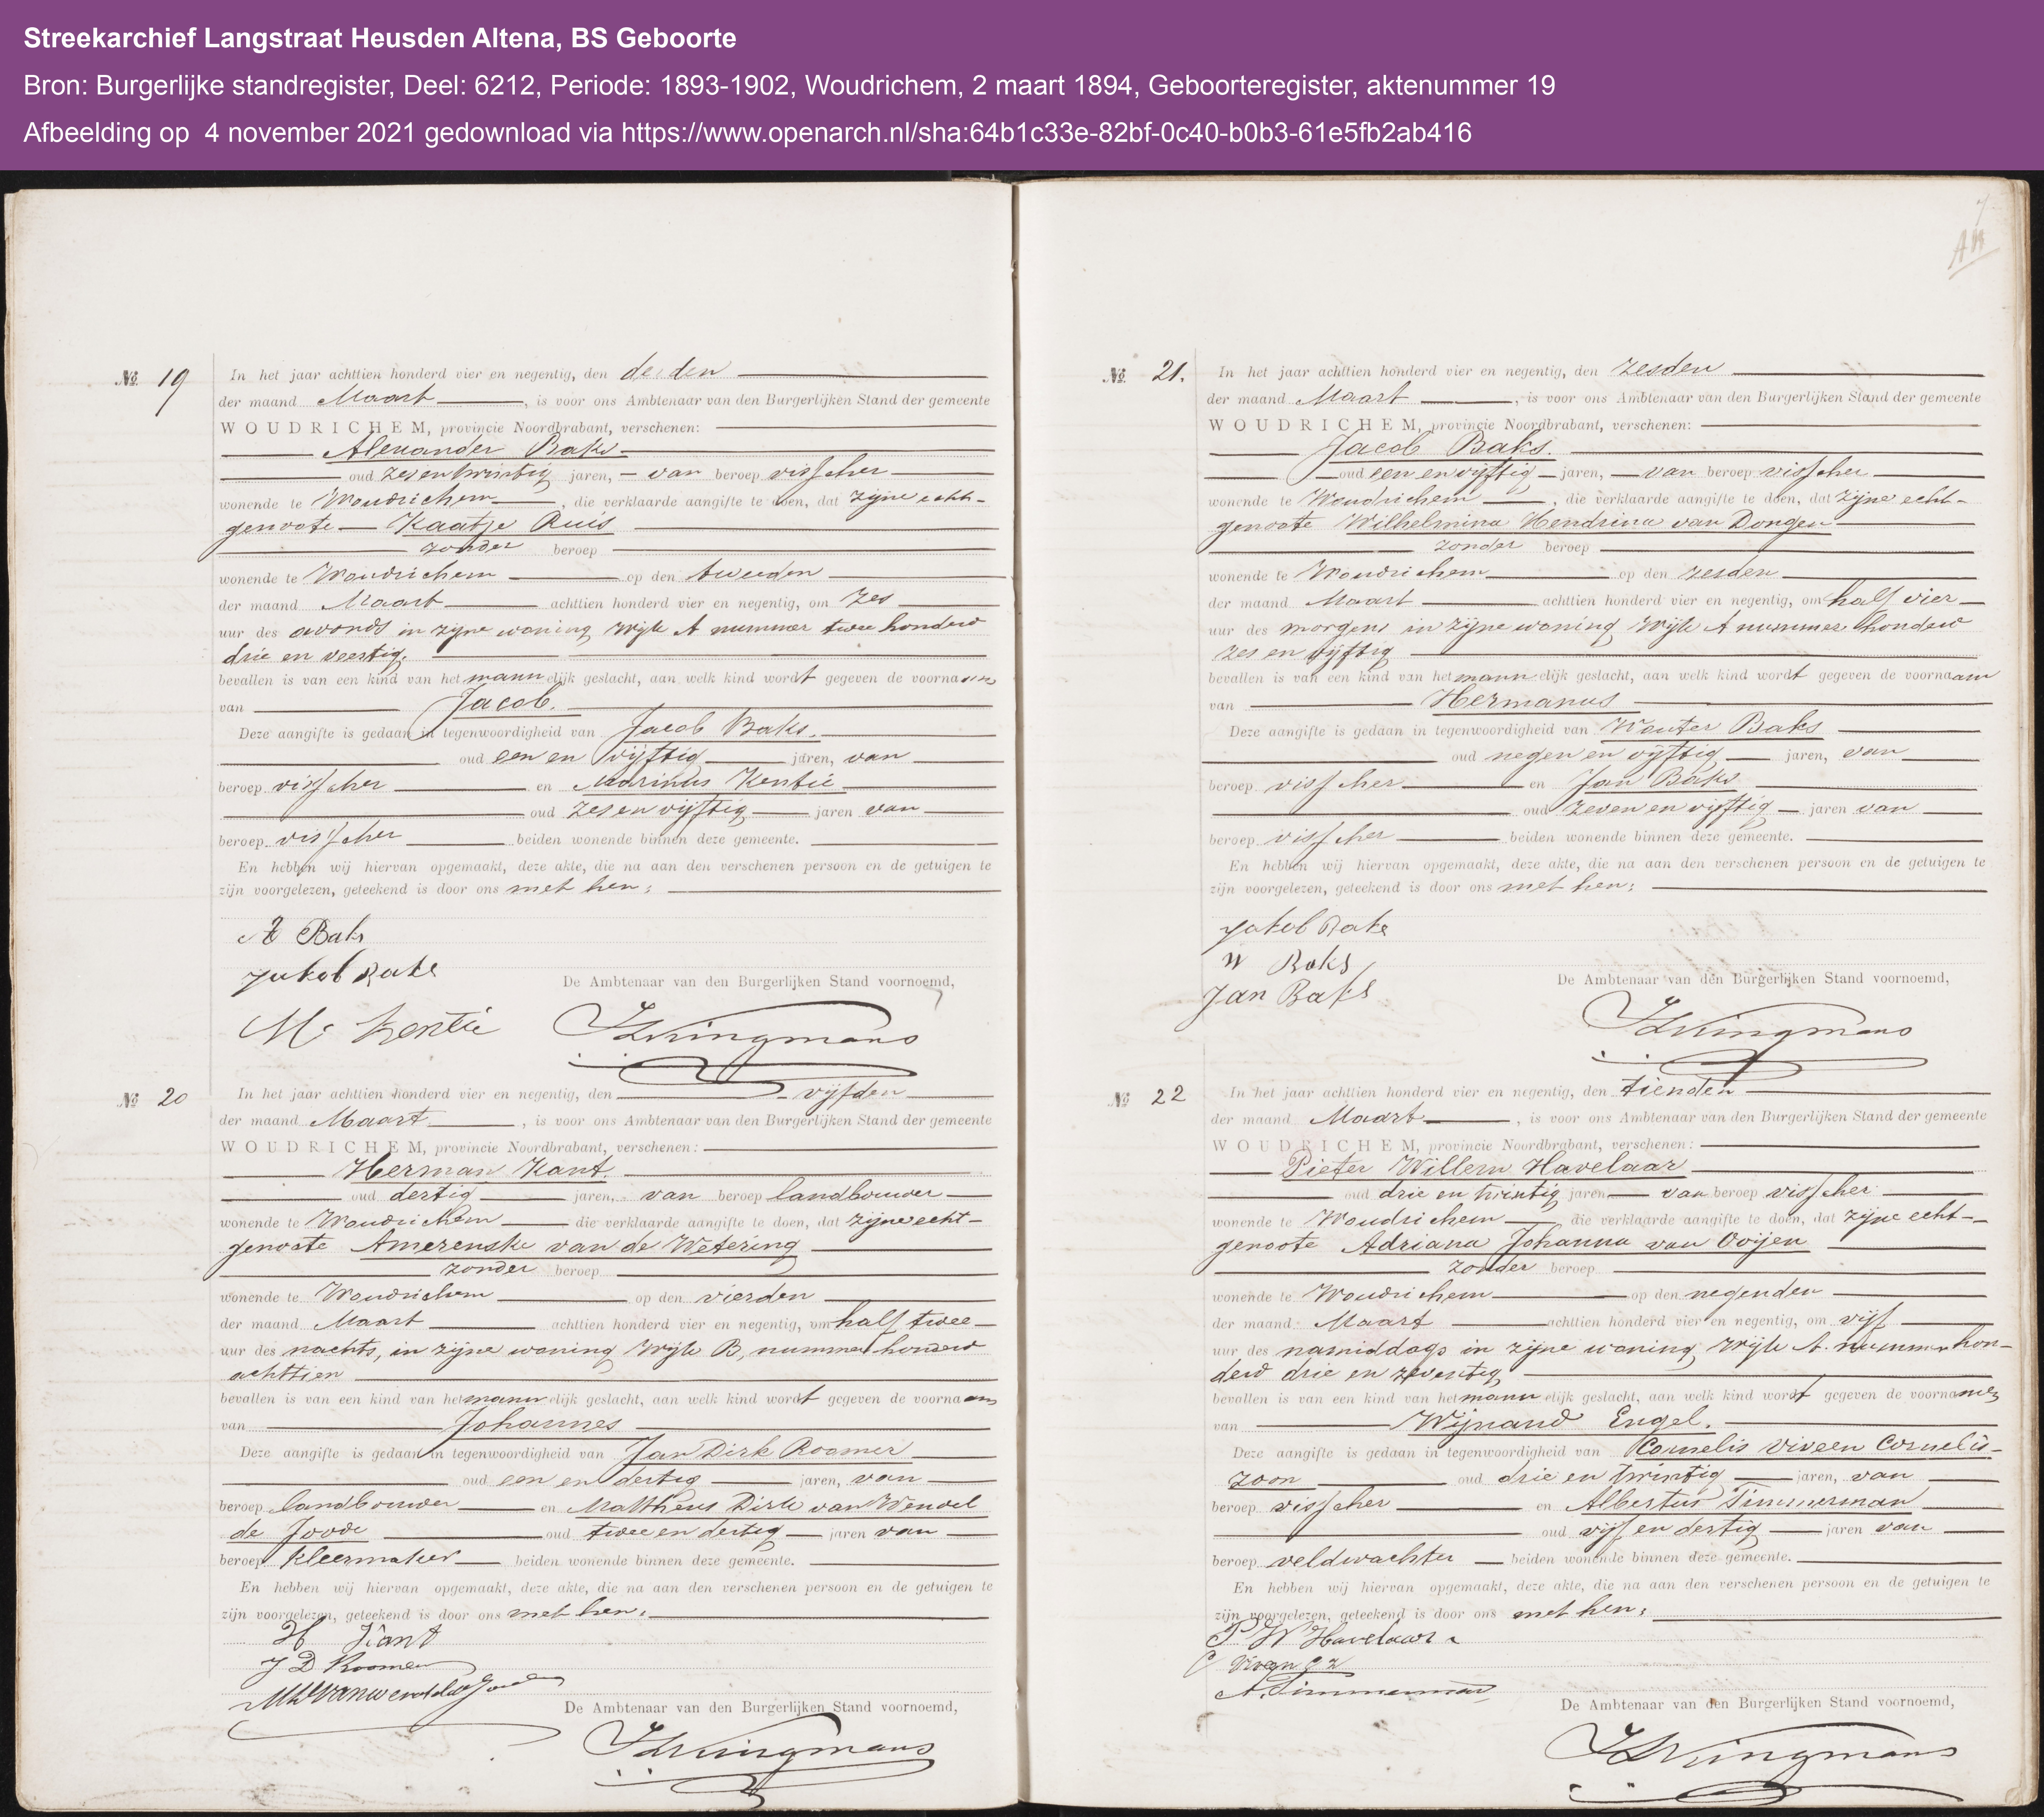 Streekarchief Langstraat Heusden Altena, BS Geboorte
Bron: Burgerlijke standregister, Deel: 6212, Periode: 1893-1902, Woudrichem, 2 maart 1894, Geboorteregister, aktenummer 19
Afbeelding op 4 november 2021 gedownload via https://www.openarch.nl/sha:64b1c33e-82bf-0c40-b0b3-61e5fb2ab416
No. 19
In het jaar achttien honderd vier en negentig, den derden
der maand Maart, is voor ons Ambtenaar van den Burgerlijken Stand der gemeente
WOUDRICHEM, provincie Noordbrabant, verschenen:
Alexander Baks
oud zesentwintig jaren, van beroep visscher
wonende te Woudrichem, die verklaarde aangifte te doen, dat zijne echt-
genoote Kaatje Ruis
zonder beroep
wonende te Woudrichem op den tweeden
der maand Maart achttien honderd vier en negentig, om zes
uur des avonds in zijne woning Wijk A nummer twee honderd
drie en veertig.
bevallen is van een kind van het mannelijk geslacht, aan welk kind wordt gegeven de voornaam
van Jacob.
Deze aangifte is gedaan in tegenwoordigheid van Jacob Baks.
oud een en vijftig jaren, van
beroep visscher en Marinus Kentie
oud zes en vijftig jaren van
beroep visscher beiden wonende binnen deze gemeente.
En hebben wij hiervan opgemaakt, deze akte, die na aan den verschenen persoon en de getuigen te
zijn voorgelezen, geteekend is door ons met hen;
A Baks
Jakob Baks
M. Kentie
De Ambtenaar van den Burgerlijken Stand voornoemd,
No. 20
In het jaar achttien honderd vier en negentig, den vijfden
der maand Maart, is voor ons Ambtenaar van den Burgerlijken Stand der gemeente
WOUDRICHEM, provincie Noordbrabant, verschenen:
Herman Kant.
oud dertig jaren, van beroep landbouwer
wonende te Woudrichem die verklaarde aangifte te doen, dat zijne echt-
genoote Amerenske van de Wetering
zonder beroep
wonende te Woudrichem op den vierden
der maand Maart achttien honderd vier en negentig, om half twee
uur des nachts, in zijne woning Wijk B, nummer honderd
achttien
bevallen is van een kind van het mannelijk geslacht, aan welk kind wordt gegeven de voornaam
van Johannes
Deze aangifte is gedaan in tegenwoordigheid van Jan Dirk Roomer
oud een en dertig jaren, van
beroep landbouwer en Mattheus Dirk van Wendel
de Joode oud twee en dertig jaren van
beroep kleermaker beiden wonende binnen deze gemeente.
En hebben wij hiervan opgemaakt, deze akte, die na aan den verschenen persoon en de getuigen te
zijn voorgelezen, geteekend is door ons met hen.
H Kant
J D Roomer
De Ambtenaar van den Burgerlijken Stand voornoemd,
No. 21.
In het jaar achttien honderd vier en negentig, den zesden
der maand Maart, is voor ons Ambtenaar van den Burgerlijken Stand der gemeente
WOUDRICHEM, provincie Noordbrabant, verschenen:
Jacob Baks.
oud een en vijftig jaren, van beroep visscher
wonende te Woudrichem, die verklaarde aangifte te doen, dat zijne echt-
genoote Wilhelmina Hendrina van Dongen
zonder beroep
wonende te Woudrichem op den zesden
der maand Maart achttien honderd vier en negentig, om half vier
uur des morgens in zijne woning Wijk A nummer honderd
zes en vijftig
bevallen is van een kind van het mannelijk geslacht, aan welk kind wordt gegeven de voornaam
van Hermanus
Deze aangifte is gedaan in tegenwoordigheid van Wouter Baks
oud negen en vijftig jaren, van
beroep visscher en Jan Baks
oud zeven en vijftig jaren van
beroep visscher beiden wonende binnen deze gemeente.
En hebben wij hiervan opgemaakt, deze akte, die na aan den verschenen persoon en de getuigen te
zijn voorgelezen, geteekend is door ons met hen;
Jakob Baks
W Baks
Jan Baks
De Ambtenaar van den Burgerlijken Stand voornoemd,
No. 22
In het jaar achttien honderd vier en negentig, den tienden
der maand Maart, is voor ons Ambtenaar van den Burgerlijken Stand der gemeente
WOUDRICHEM, provincie Noordbrabant, verschenen:
Pieter Willem Havelaar
oud drie en twintig jaren van beroep visscher
wonende te Woudrichem die verklaarde aangifte te doen, dat zijne echt-
genoote Adriana Johanna van Ooijen
zonder beroep
wonende te Woudrichem op den negenden
der maand Maart achttien honderd vier en negentig, om vijf
uur des namiddags in zijne woning, Wijk A. nummer hon-
derd drie en zeventig
bevallen is van een kind van het mannelijk geslacht, aan welk kind wordt gegeven de voornamen
van Wijnand Engel.
Deze aangifte is gedaan in tegenwoordigheid van Cornelis Viveen Cornelis-
zoon oud drie en twintig jaren, van
beroep visscher en Albertus Timmerman
oud vijf en dertig jaren van
beroep veldwachter beiden wonende binnen deze gemeente.
En hebben wij hiervan opgemaakt, deze akte, die na aan den verschenen persoon en de getuigen te
zijn voorgelezen, geteekend is door ons met hen;
P W Havelaar
C Viveen Cz
A. Timmerman
De Ambtenaar van den Burgerlijken Stand voornoemd,